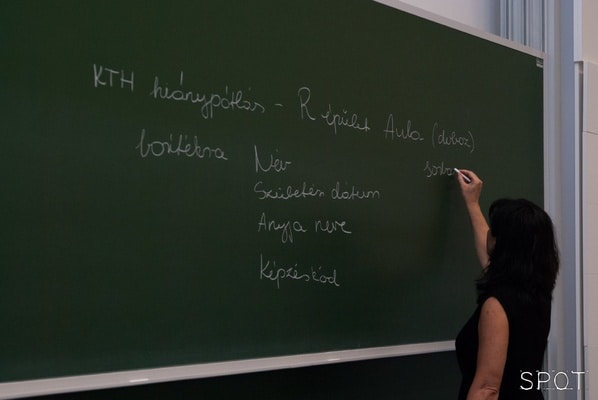 KTH hiánypótlás - R épület Aula (doboz)
borítékra Név
Születési dátum
Anyja neve
Képzéskód
SPOT